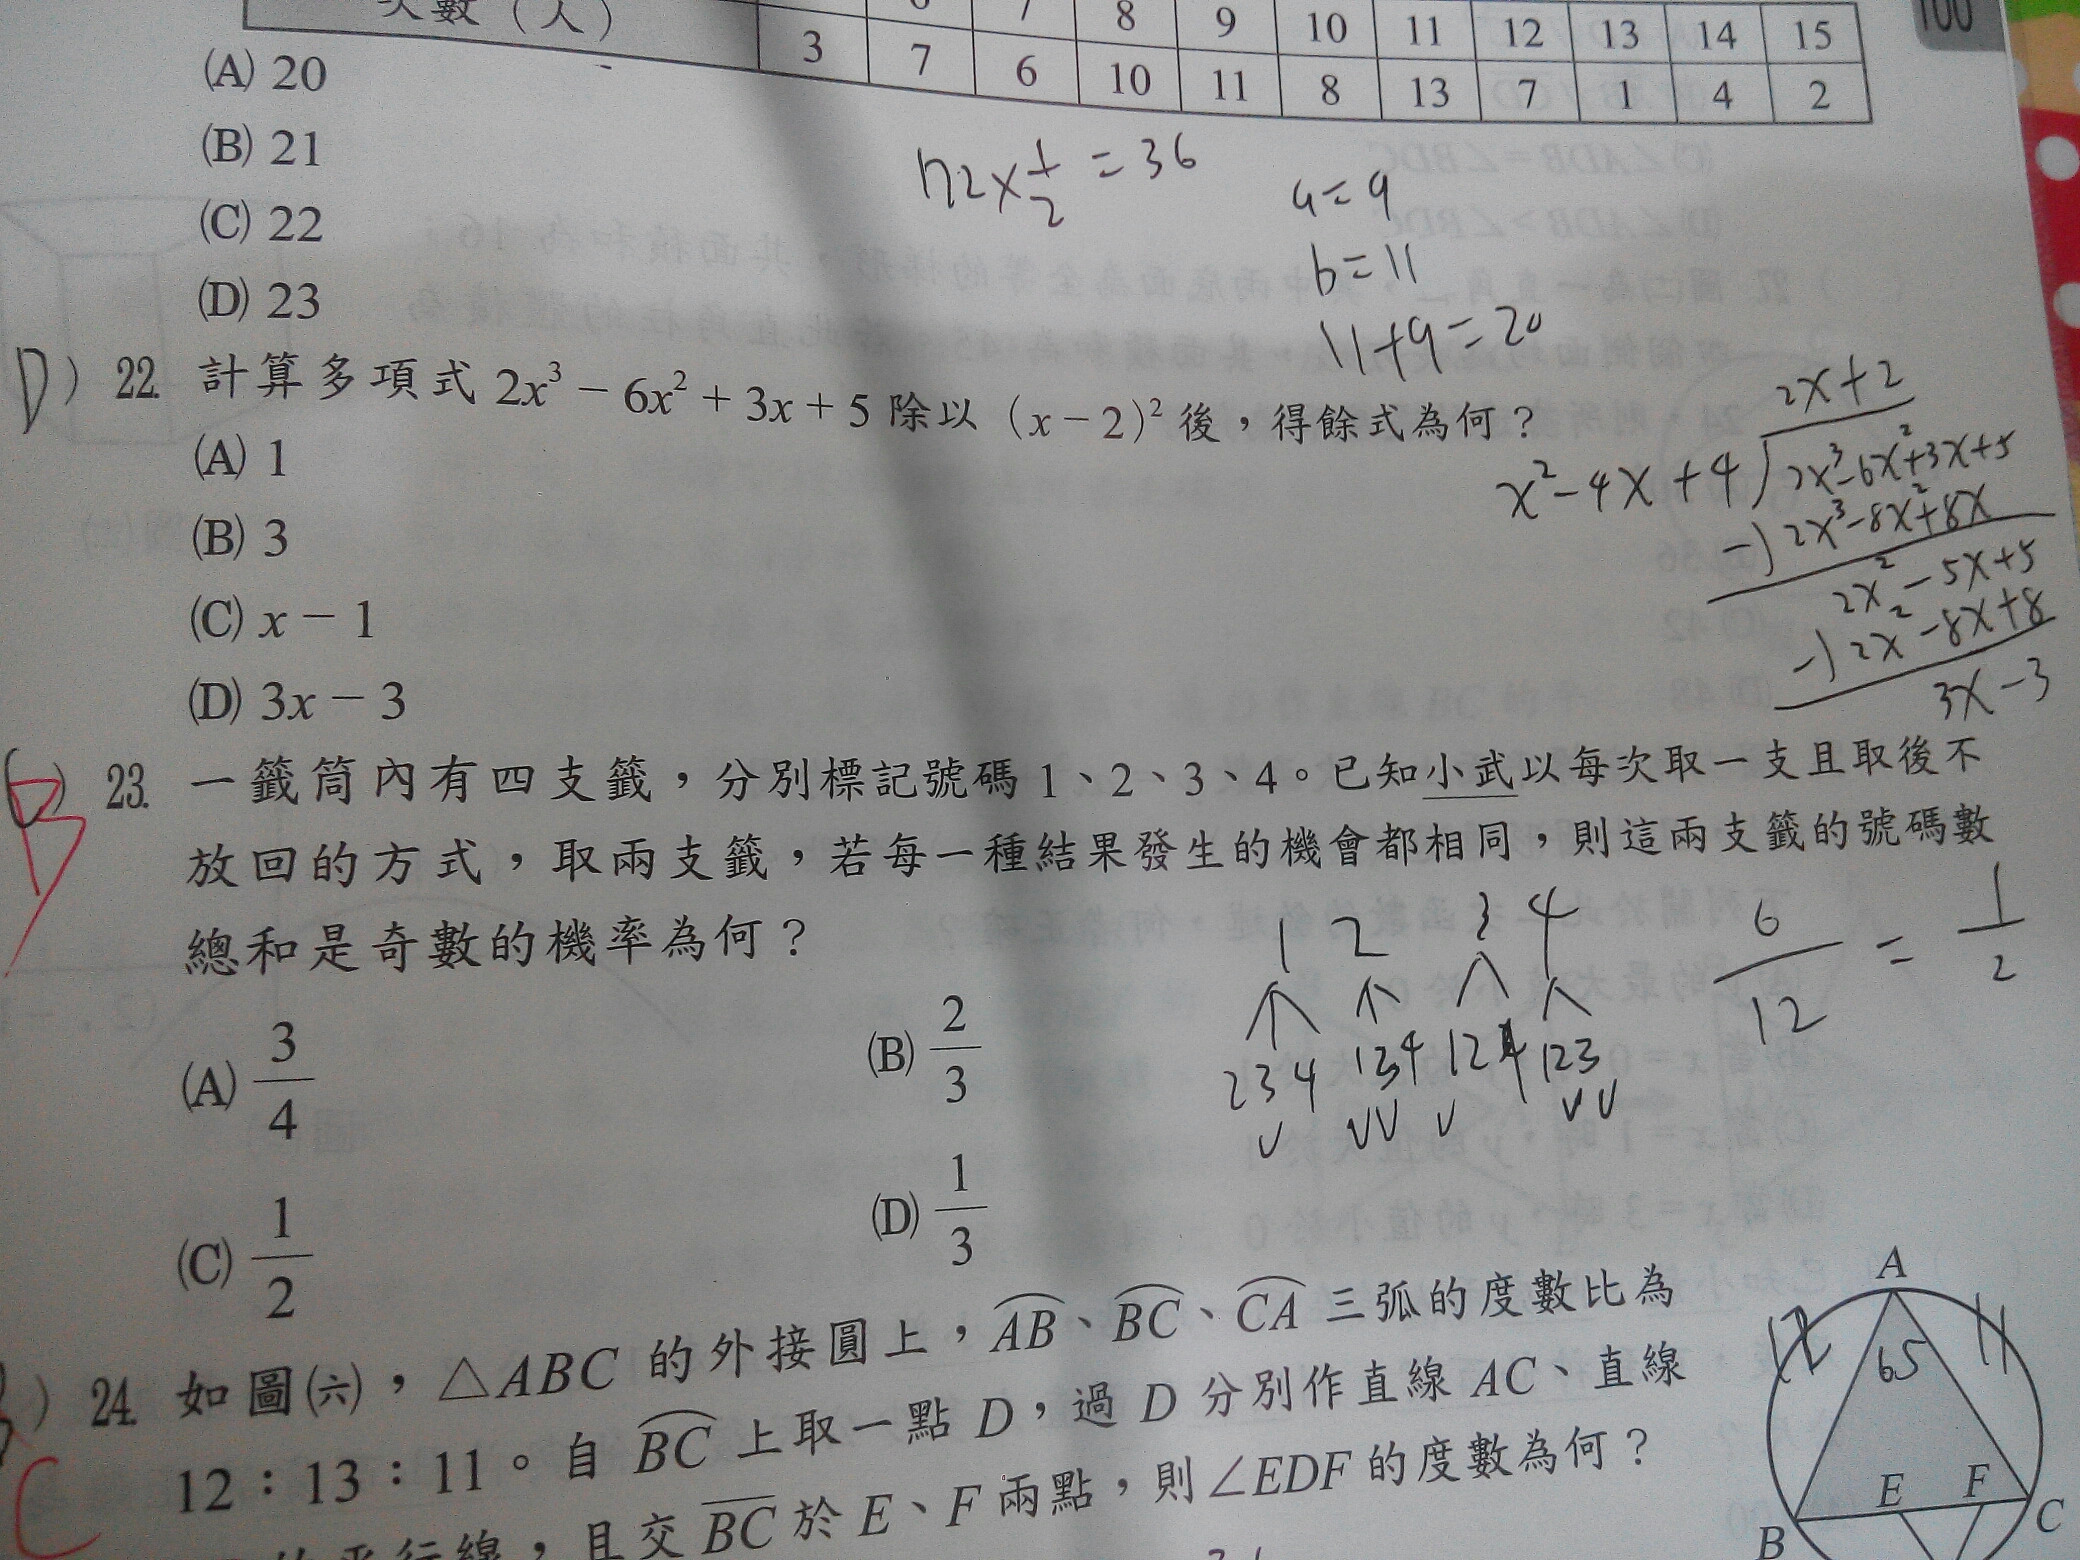 次數（人） 3 7 6 10 11 8 13 7 1 4 2
6 7 8 9 10 11 12 13 14 15
100
(A) 20
(B) 21
(C) 22
(D) 23
72×1/2=36
a=9
b=11
11+9=20
D) 22. 計算多項式 2x³－6x²＋3x＋5 除以（x－2)²後，得餘式為何？
(A) 1
(B) 3
(C) x－1
(D) 3x－3
2x+2
x²-4x+4)2x³-6x²+3x+5
-)2x³-8x²+8x
2x²-5x+5
-)2x²-8x+8
3x-3
B) 23. 一籤筒內有四支籤，分別標記號碼 1、2、3、4。已知小武以每次取一支且取後不
放回的方式，取兩支籤，若每一種結果發生的機會都相同，則這兩支籤的號碼數
總和是奇數的機率為何？
1 2 3 4
234 134 124 123
6/12 = 1/2
(A) 3/4 (B) 2/3
(C) 1/2 (D) 1/3
) 24. 如圖(六)，△ABC 的外接圓上，AB、BC、CA 三弧的度數比為
12：13：11。自 BC 上取一點 D，過 D 分別作直線 AC、直線
的平行線，且交 BC 於 E、F 兩點，則∠EDF 的度數為何？
C
A
12 65 11
E F
B C